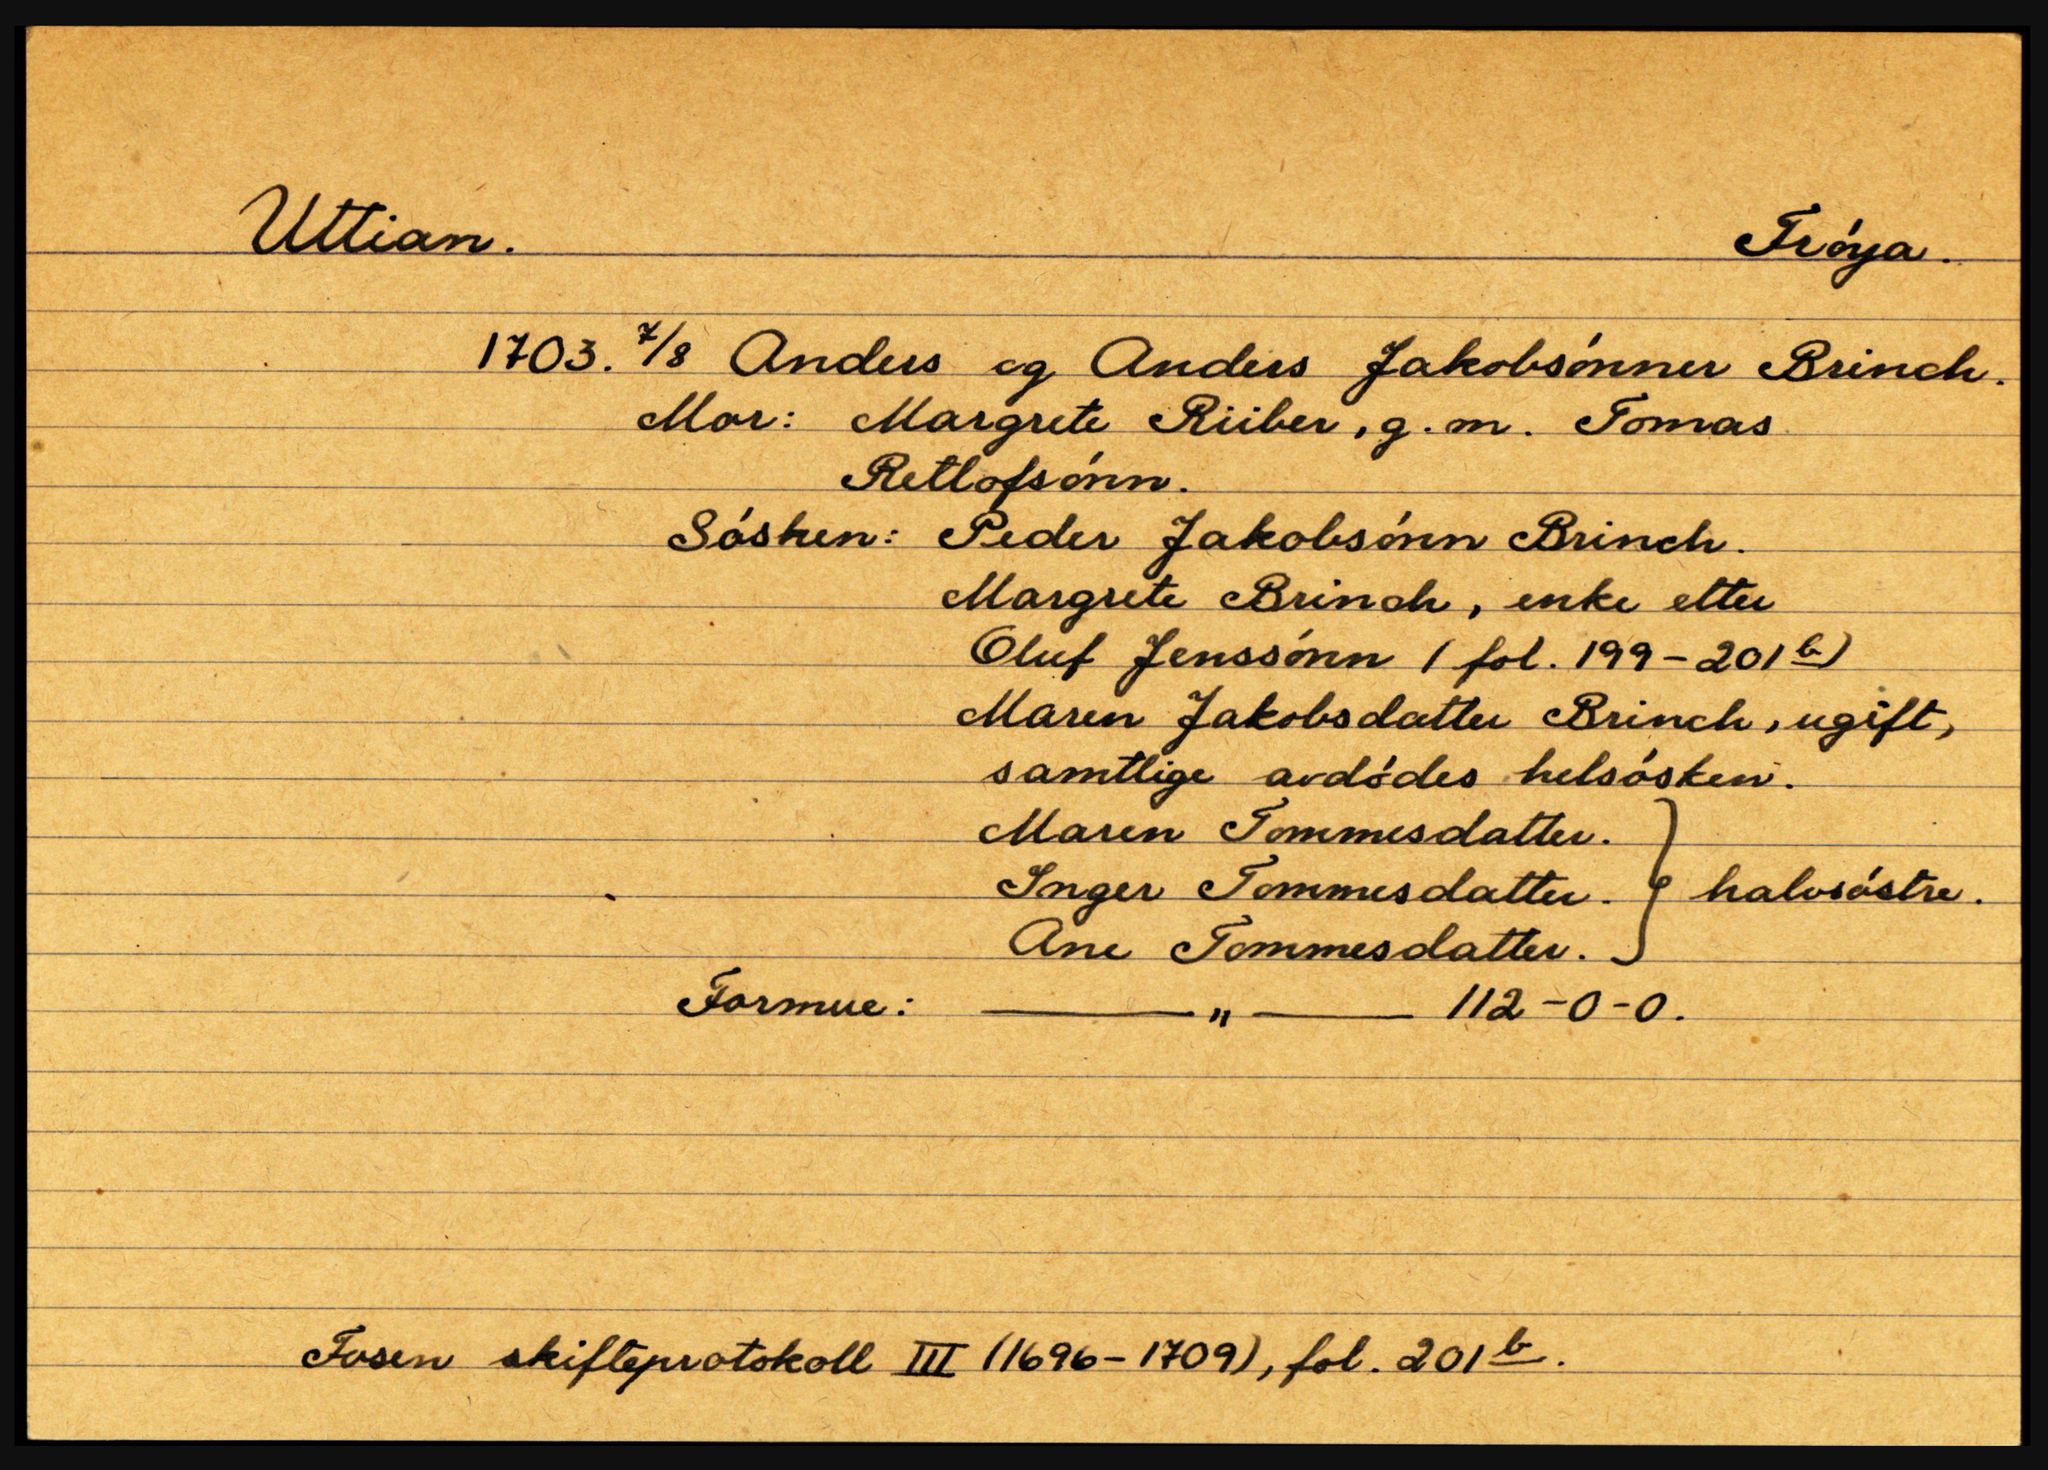 Uttian. Fröya.
1703. 7/8 Anders og Anders Jakobsönner Brinch.
Mor: Margrete Riiber, g.m. Tomas
Retlofsönn.
Sösken: Peder Jakobsönn Brinch.
Margrete Brinch, enke etter
Oluf Jenssönn (fol. 199-201b)
Maren Jakobsdatter Brinch, ugift,
samtlige avdödes helsösken.
Maren Tommesdatter.
Inger Tommesdatter. } halvsöstre.
Ane Tommesdatter.
Formue: — " — 112-0-0.
Fosen skifteprotokoll III (1696-1709), fol. 201b.